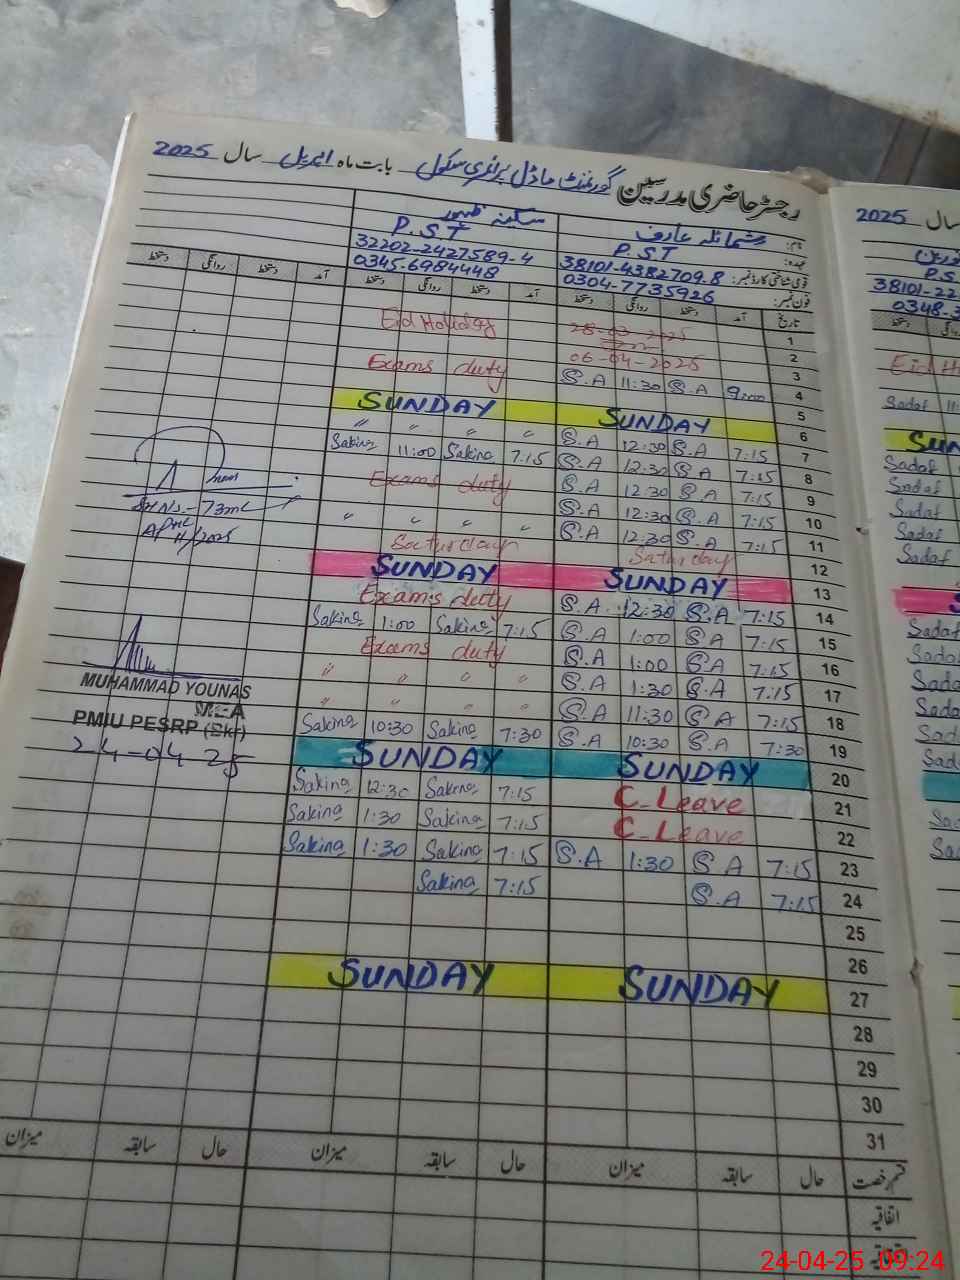 رجسٹر حاضری مدرسین گورنمنٹ ماڈل پرائمری سکول بابت ماہ اپریل سال 2025
سال 2025
نام: شمائلہ عارف سکینہ ظہور
عہدہ: P.ST P.ST P.S
قومی شناختی کارڈ نمبر: 38101-4382709.8 32202-2427589-4 38101-22
فون نمبر: 0304-7735926 0345-6984448 0348-3
تاریخ آمد دستخط روانگی دستخط آمد دستخط روانگی دستخط آمد دستخط روانگی دستخط
1 28-03-2025 Eid Holiday
2 06-04-2025 Eid H
3 Exams duty
4 S.A 11:30 S.A 9:00 Sadaf 11
5
6 SUNDAY SUNDAY SUN
7 〃 〃 〃 〃 S.A 12:30 S.A 7:15 Sadaf
8 Sakina 11:00 Sakina 7:15 S.A 12:30 S.A 7:15 Sadaf
9 Exams duty S.A 12:30 S.A 7:15 Sadaf
10 S.A 12:30 S.A 7:15 Sadaf
11 〃 〃 〃 〃 S.A 12:30 S.A 7:15 Sadaf
12 Saturday Saturday
13 SUNDAY SUNDAY S
14 Exams duty S.A 12:30 S.A 7:15 Sadaf
15 Sakina 1:00 Sakina 7:15 S.A 1:00 S.A 7:15 Sada
16 Exams duty S.A 1:00 S.A 7:15 Sada
17 〃 〃 〃 〃 S.A 1:30 S.A 7:15 Sada
18 〃 〃 〃 〃 S.A 11:30 S.A 7:15 Sad
19 Sakina 10:30 Sakina 7:30 S.A 10:30 S.A 7:30 Sad
20 SUNDAY SUNDAY
21 Sakina 12:30 Sakina 7:15 C-Leave
22 Sakina 1:30 Sakina 7:15 C-Leave
23 Sakina 1:30 Sakina 7:15 S.A 1:30 S.A 7:15
24 Sakina 7:15 S.A 7:15
25
26
27 SUNDAY SUNDAY
28
29
30
31
قسم رخصت حال سابقہ میزان حال سابقہ میزان حال سابقہ میزان
اتفاقیہ
11/2025
MUHAMMAD YOUNAS
MEA
PMIU PESRP (Bkr)
24-04-25
24-04-25 09:24